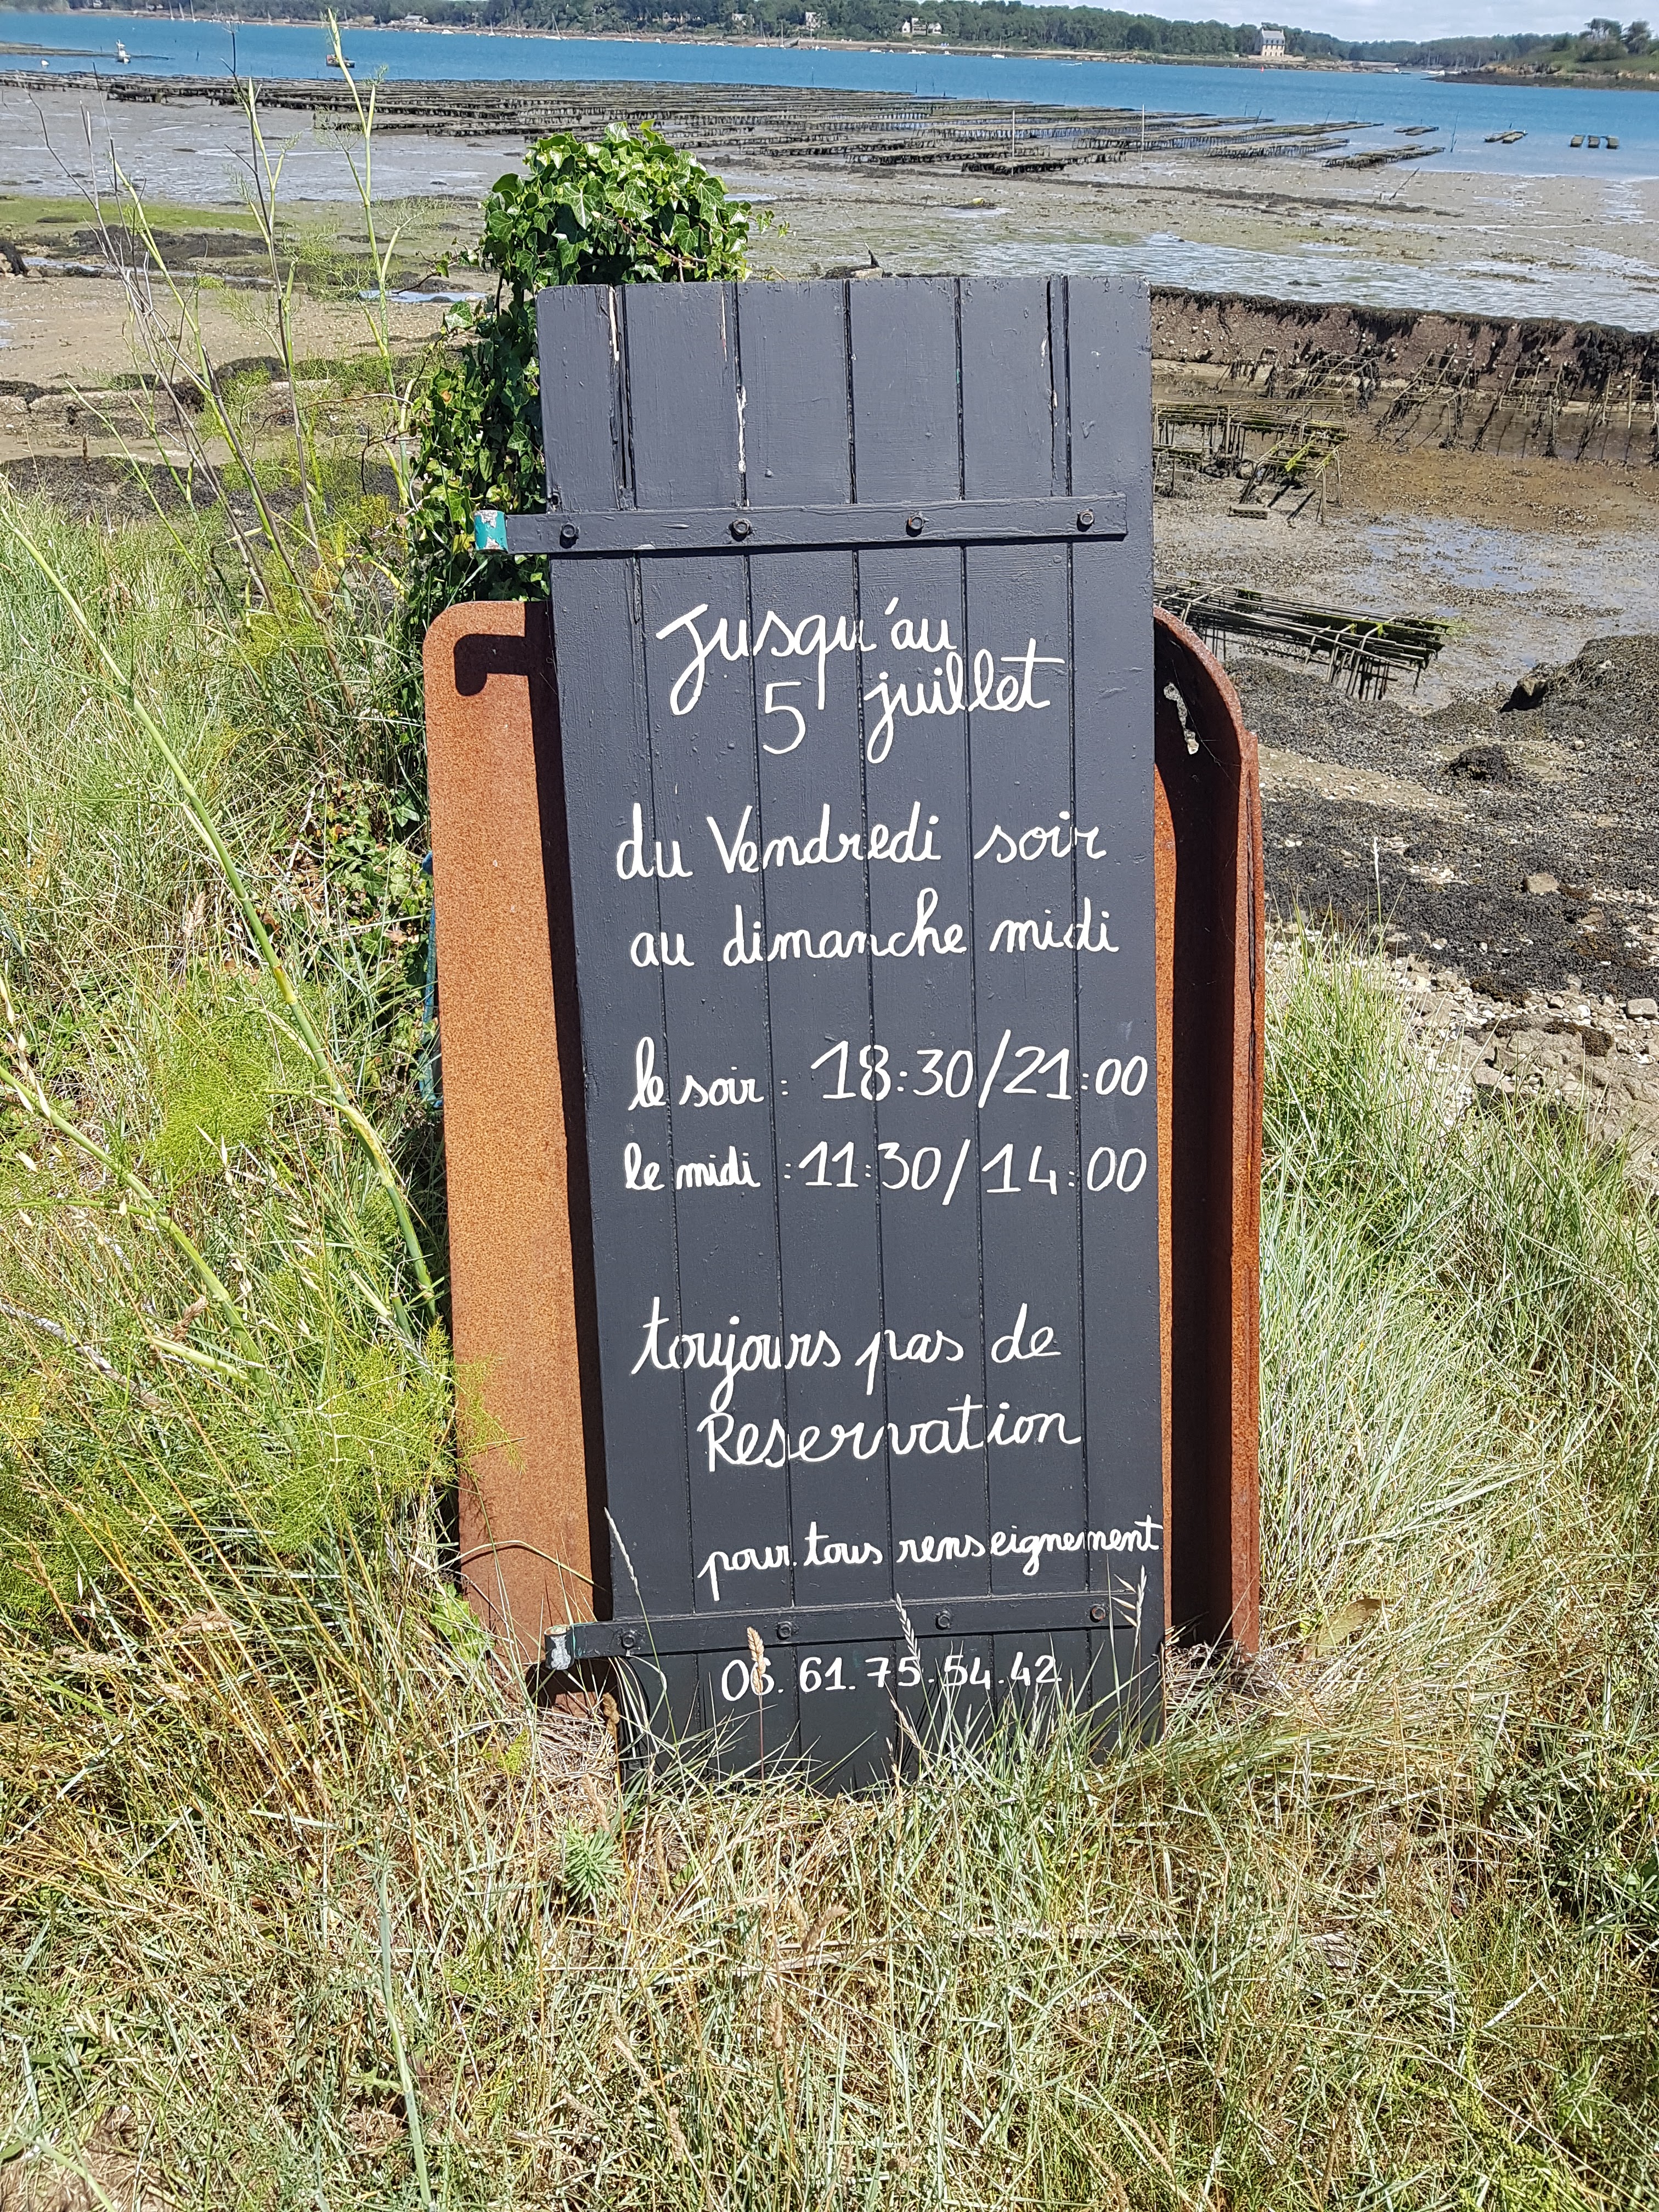 Jusqu'au
5 juillet
du Vendredi soir
au dimanche midi
le soir : 18:30/21:00
le midi : 11:30/14:00
toujours pas de
Reservation
pour tous renseignement
06.61.75.54.42